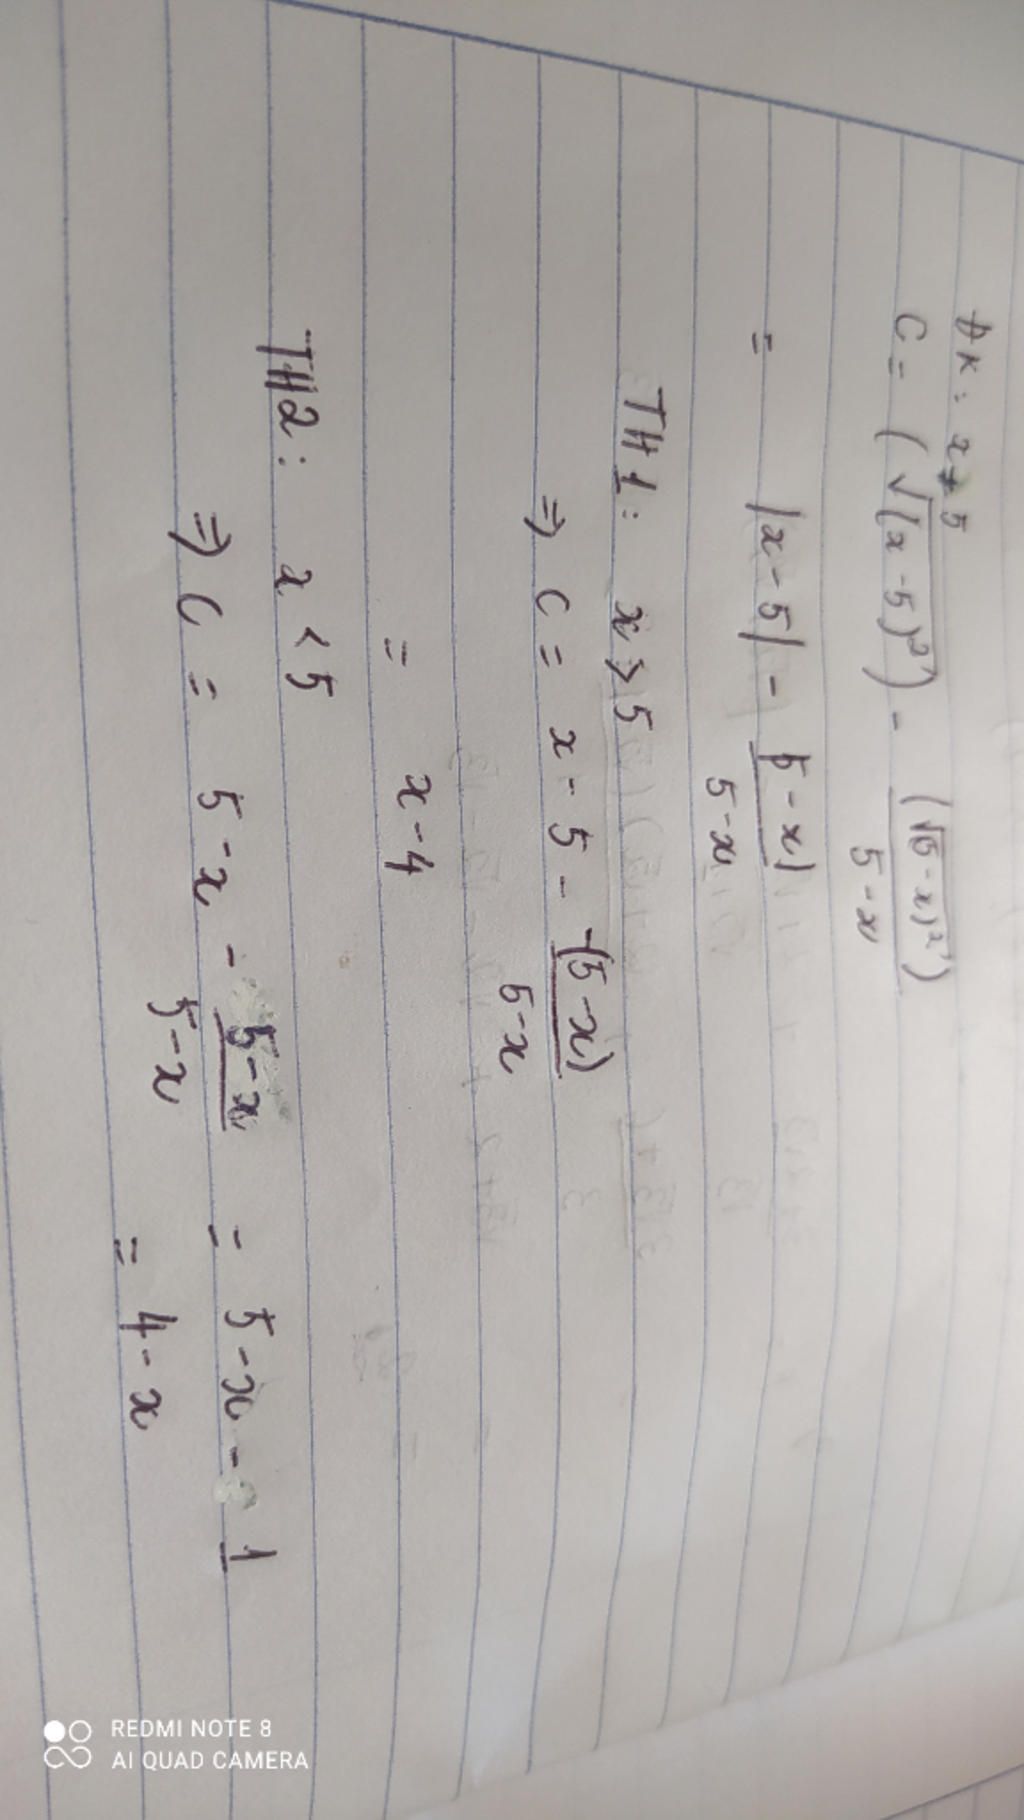 ĐK: x ≠ 5
C = (√(x-5)²) - (√(5-x)²) / 5-x
= |x-5| - |5-x| / 5-x
TH1: x > 5
⇒ C = x-5 - -(5-x) / 5-x
= x-4
TH2: x < 5
⇒ C = 5-x - 5-x / 5-x = 5-x - 1
= 4-x
REDMI NOTE 8
AI QUAD CAMERA